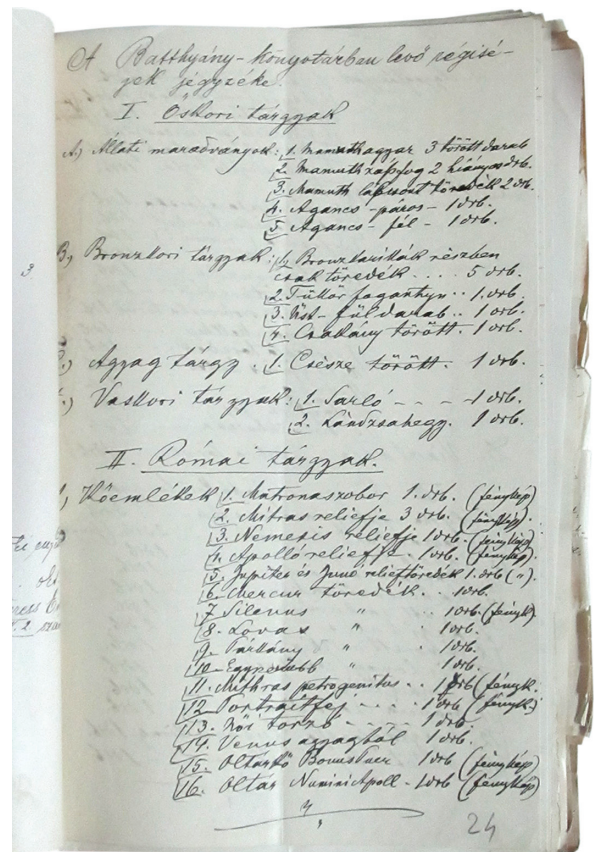 A Batthyány-könyvtárban levő régisé-
gek jégyzéke.
I. Őskori tárgyak
A.) Állati maradványok: 1. Mamuthagyar 3 törött darab
2. Mamuth zápfog 2 hiányos drb.
3. Mamuth töredék 2 drb.
4. Agancs - páros - 1 drb.
5. Agancs - fél - 1 drb.
3
B.) Bronzkori tárgyak: 1. Bronzkarikák részben
csak töredék .... 5 drb.
2. Tükör fogantyu .. 1. drb.
3. Üst - fül darab .. 1 drb.
4. Csákány törött. 1 drb.
Agyag tárgy. 1. Csésze törött. 1 drb.
Vaskori tárgyak: 1. Sarló - - - 1 drb.
2. Lándzsahegy. 1 drb.
II. Római tárgyak.
Kőemlékek 1. Matronaszobor 1. drb. (fénykép)
2. Mitras reliefje 3 drb. (fénykép).
3. Nemezis reliefje 1 drb. (fénykép)
4. Apolló reliefje. 1 drb. (fénykép)
5. Jupiter és Junó relieftöredék 1. drb (").
6. Mercur töredék. . 1 drb.
7 Silenus " 1 drb. (fényk.)
8. Lovas " 1 drb.
9. Párkány " 1 drb.
10. " 1 drb.
11. Mithras petrogenitus .. 1 drb (fényk.
12. Portraitfej - - - - 1 drb (fényk.)
13. Női torzó - - - - 1 drb.
14. Venus agyagból 1 drb.
15. Oltárkő 1 drb (fénykép)
16. Oltár Numini Apoll - 1 drb (fénykép)
24